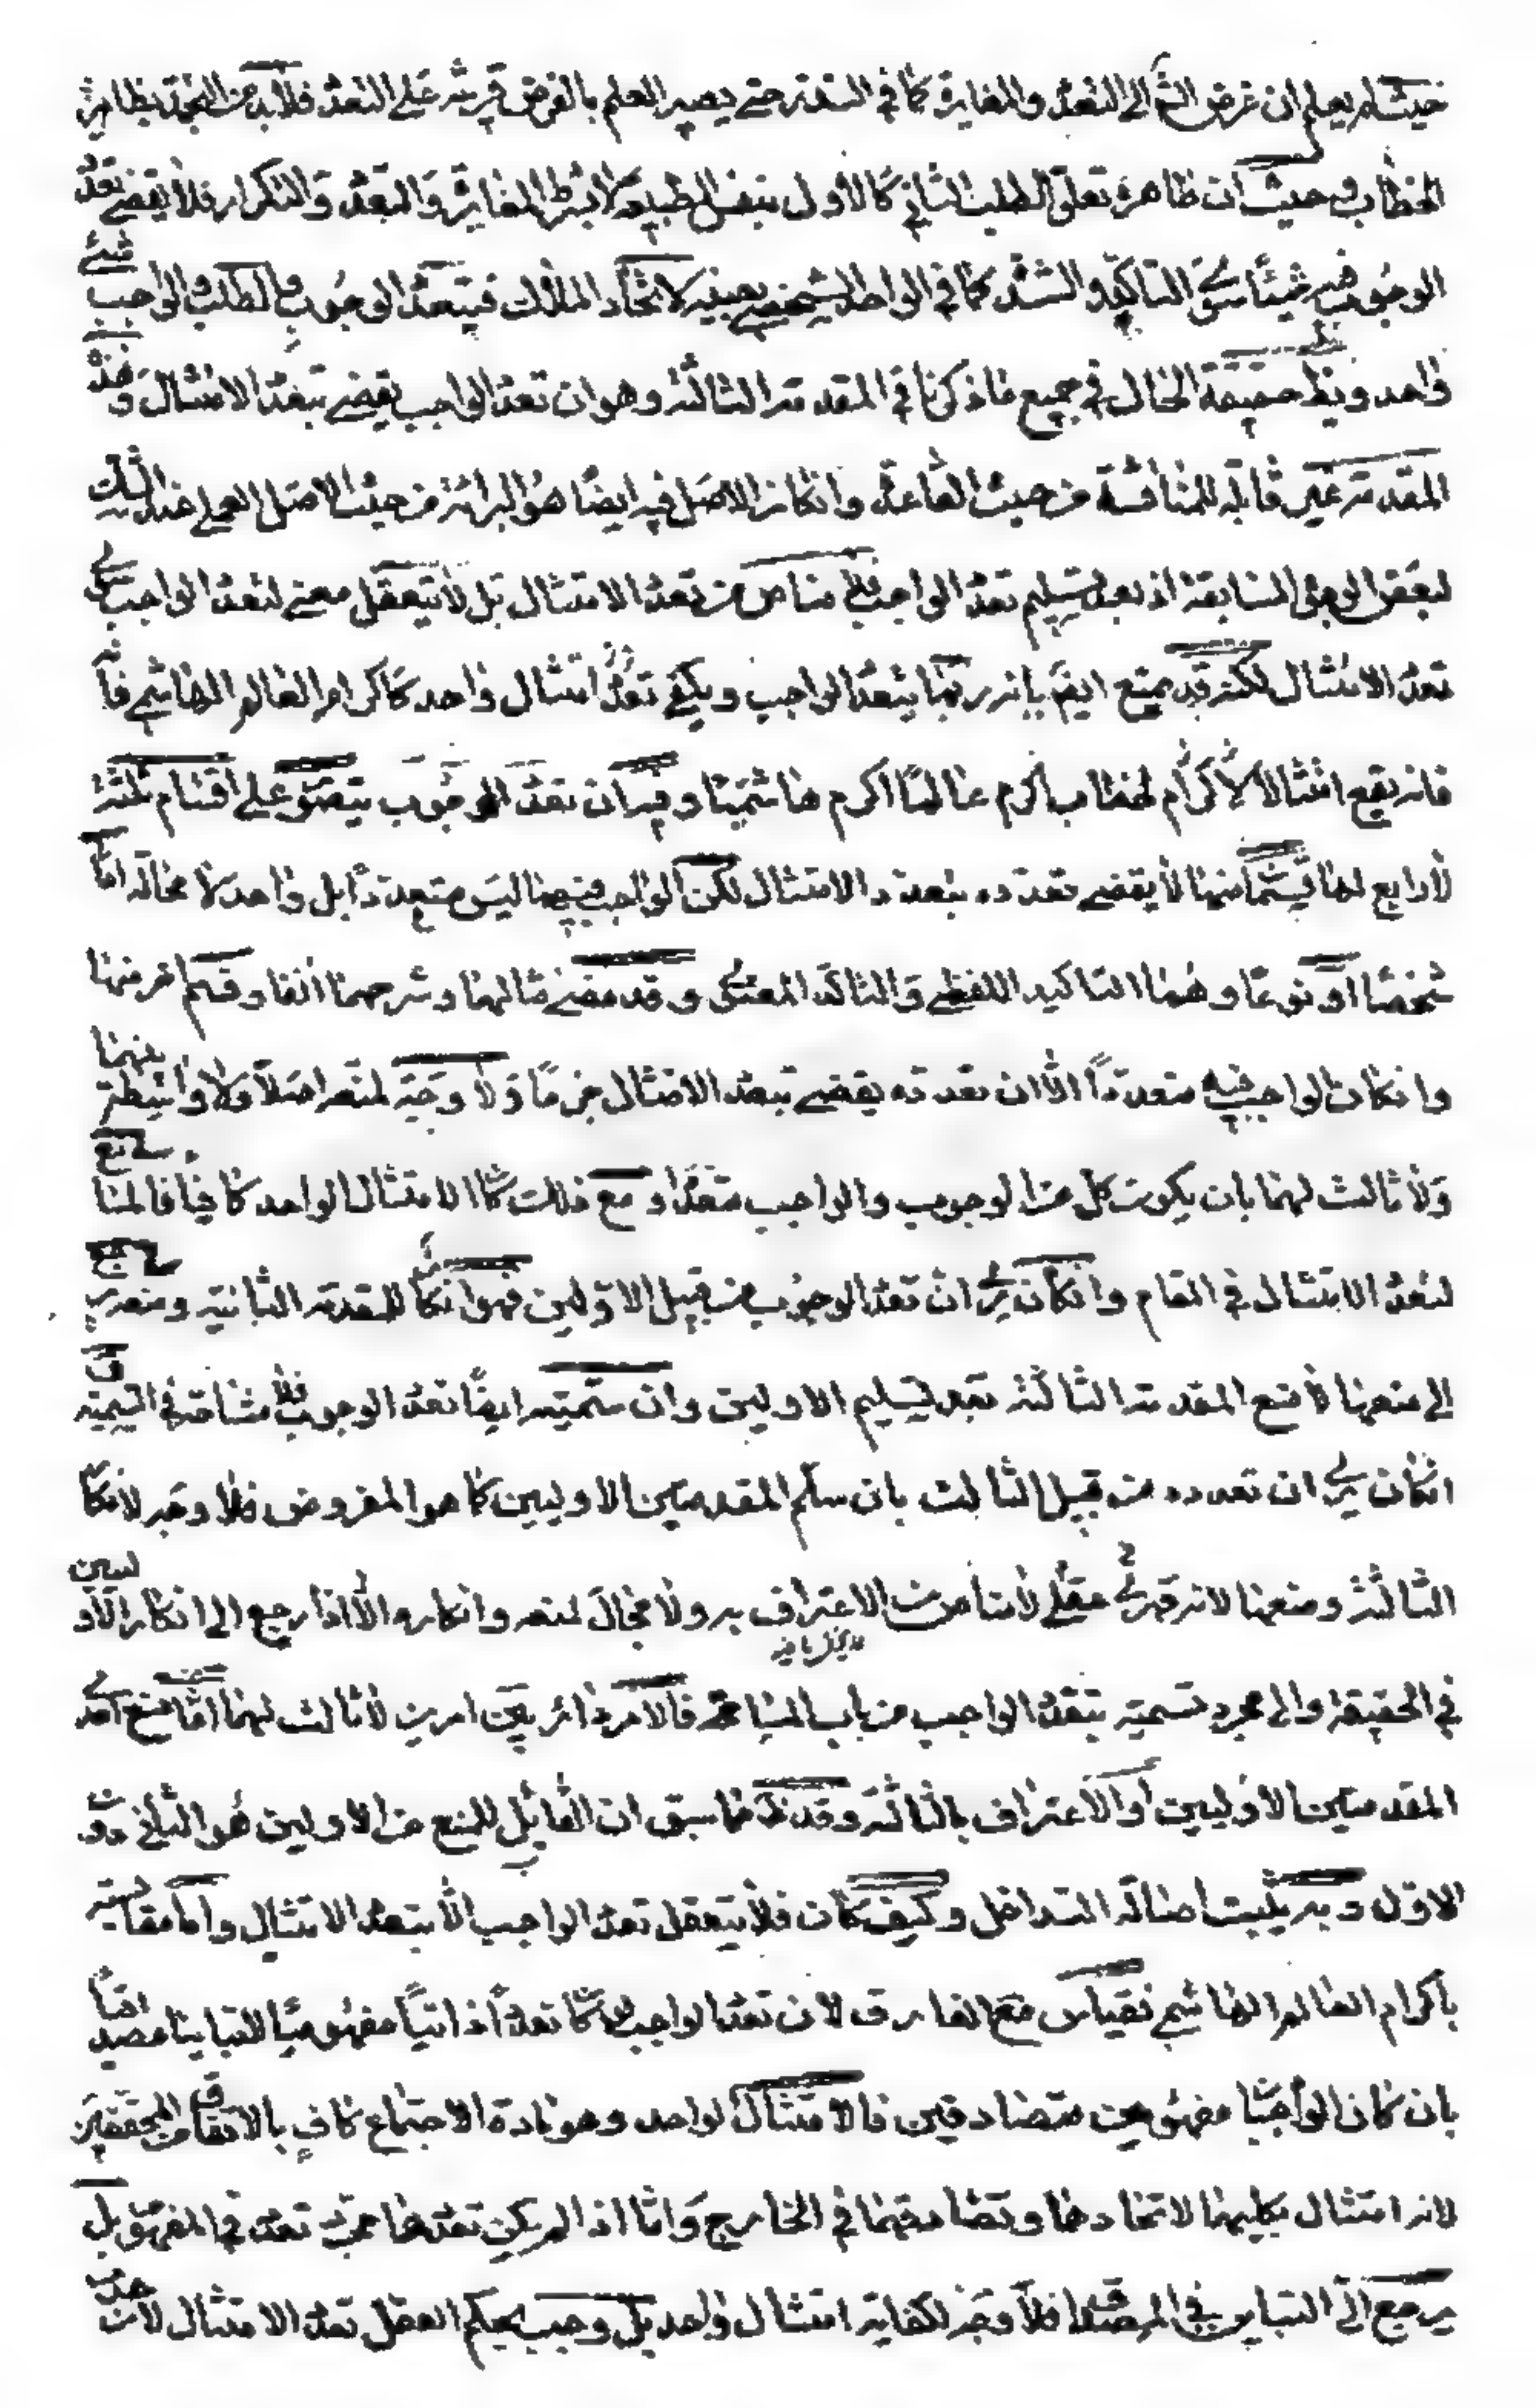 حيث لم يعلم ان غرض الشم الى التعدد والمغايرة كما في السند ترحتى يصير العلم بالغرض قرينة على التعدد فلابد من التجمد بظاهر
الخطاب وحيث ان ظاهره تعلق الطلب الثاني كالاول بنفس الطبيعة لا بشرط المغايرة والتعدد والتكرار فلا يقتضي تعدد
الوجوب فيه شيئا سوى التاكيد والتشدد كما في الواحد الشخصي بعينه لاتحاد الملاك فيتعدد الوجوب والطلب والواجب شئ
واحد ويظ حقيقة الحال في جميع ماذكرنا في المقدمة الثالثة وهو ان تعدد الواجب يقتضي بتعدد الامتثال وهذه
المقدمة غير قابلة للمناقشة من حيث القاعدة وانكان الاصل فيه ايضا هو البرائة من حيث الاصل العملي عند الشك
لبعض الوجوه السابقة اذ بعد تسليم تعدد الواجب فلا مناص من تعدد الامتثال بل لا يتعقل معنى لتعدد الواجب سوى
تعدد الامتثال لكنه قد يمنع ايضا بانه ربما يتعدد الواجب ويكفي امتثال واحد كاكرام العالم الهاشمي
فانه يقع امتثالا لاكرام لخطاب اكرم عالما اكرم هاشميا وفيه ان تعدد الوجوب يتصور على اقسام ثلثة
لا رابع لها قسما منها لا يقتضي تعدده بتعدد الامتثال لكن الواجب فيهما ليس متعددا بل واحد لا محالة اما
شخصا او نوعا وهما التاكيد اللفظي والتاكد المعنوي وقد مضى مثالهما وشرحهما انفا وقسم اخر منها
وانكان الواجب فيه متعددا الا ان تعدده يقتضي تبعدد الامتثال جزما ولا وجه لمنعه اصلا ولا واسطة بينهما
ولا ثالث لهما بان يكون كل من الوجوب والواجب متعددا ومع ذلك كان الامتثال الواحد كافيا فالمانع
لتعدد الامتثال في المقام وانكان يرى ان تعدد الوجوب من قبيل الاولين فهو انكار للمقدمة الثانية ومنعه راجع
الى منعها لا منع المقدمة الثالثة بعد تسليم الاوليين وان سميته ايضا تعدد الوجوب فلا مشاحة في التسمية
انكان يرى ان تعدده من قبيل الثالث بان سلم المقدمتين الاوليين كما هو المفروض فلا وجه لانكار
الثالثة ومنعها لانه قهري عقلي لا مناص من الاعتراف به ولا مجال لمنعه وانكاره الا اذا رجع الى انكار الاوليين
في الحقيقة والى مجرد تسمية بتعدد الواجب من باب المسامحة فالامر دائر بين امرين لا ثالث لهما اما منع احدى
المقدمتين الاوليين او الاعتراف بالثالثة وقد ظ مما سبق ان القابل للمنع من الاوليين هو الثاني دون
الاول وبه يثبت اصالة التداخل وكيف كان فلا يتعقل تعدد الواجب الا بتعدد الامتثال واما مقايسته
باكرام العالم الهاشمي فقياس مع الفارق لان تعدد الواجب لو كان تعددا ذاتيا مفهوميا
بان كان الواجبان مفهومين متصادقين فالامتثال الواحد وهو مادة الاجتماع كاف بالاتفاق
لانه امتثال بكليهما لاتحادهما وتصادقهما في الخارج واما اذا لم يكن تعددهما مجرد تعدد في المفهوم بل
يرجع الى التباين في المصداق فلا وجه لكفاية امتثال واحد بل وجب بحكم العقل تعدد الامتثال لان